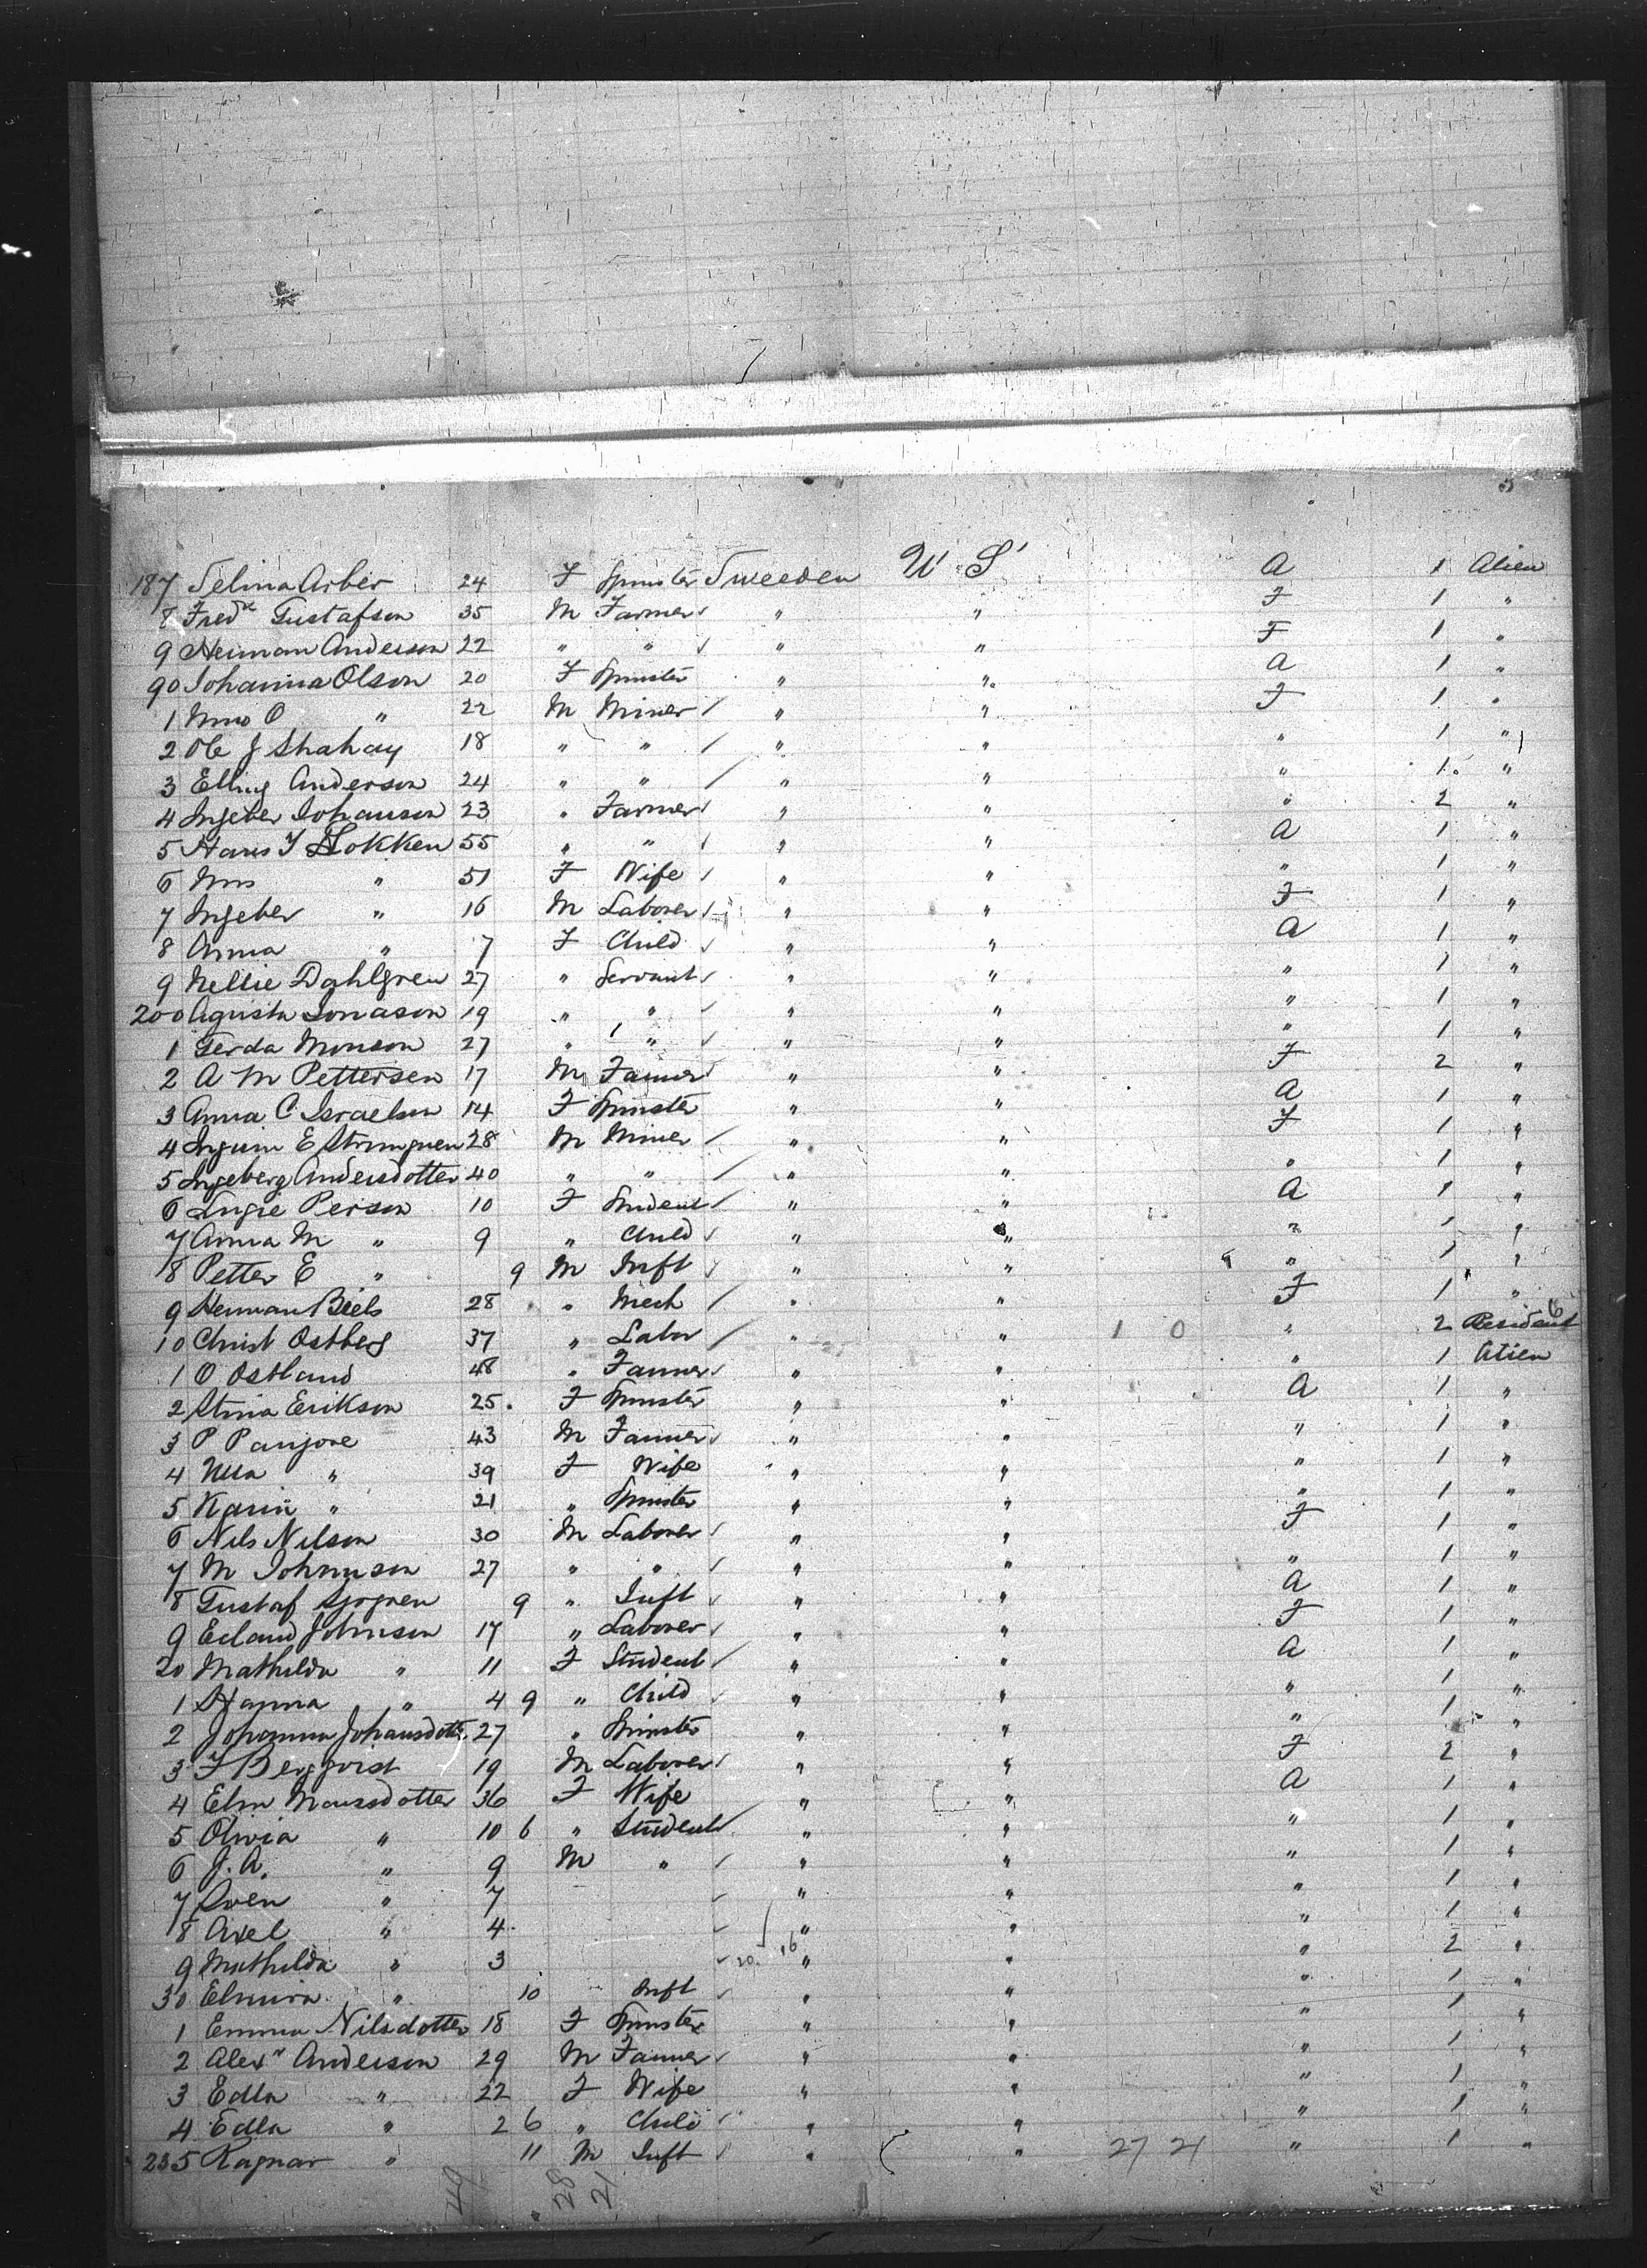 187 Selina Arber 24 F Spinster Sweeden U S A 1 Alien
8 Fredk Gustafson 35 M Farmer " " F 1 "
9 Herman Anderson 22 " " " " F 1 "
90 Johanna Olson 20 F Spinster " " A 1 "
1 O " 22 M Miner " " F 1 "
2 Ole J 18 " " " " " 1 "
3 Elling Anderson 24 " " " " " 1 "
4 Ingeber Johanson 23 " Farmer " " " 2 "
5 Hans J Lokken 55 " " " " A 1 "
6 Mrs " 51 F Wife " " " 1 "
7 Ingeber " 16 M Laborer " " F 1 "
8 Anna " 7 F Child " " A 1 "
9 Nellie Dahlgren 27 " Servant " " " 1 "
200 Agusta Jonason 19 " " " " " 1 "
1 Gerda Monson 27 " " " " " 1 "
2 A M Pettersen 17 M Farmer " " F 2 "
3 Anna C Israelson 14 F Spinster " " A 1 "
4 E 28 M Miner " " F 1 "
5 Ingeberg Andersdotter 40 " " " " " 1 "
6 Person 10 F Student " " A 1 "
7 Anna M " 9 " Child " " " 1 "
8 Petter E " 9 M Inft " " " 1 "
9 Herman 28 " Mech " " F 1 "
10 Christ Ostberg 37 " Labor " " 1 0 " 2 Resident 6
1 O Ostland 48 " Farmer " " " 1 Alien
2 Stina Erikson 25 F Spinster " " A 1 "
3 P 43 M Farmer " " " 1 "
4 " 39 F Wife " " " 1 "
5 Karin " 21 " Spinster " " " 1 "
6 Nils Nilson 30 M Laborer " " F 1 "
7 M Johnson 27 " " " " " 1 "
8 Gustaf Sjogren 9 " Inft " " A 1 "
9 Erland Johnson 17 " Laborer " " F 1 "
20 Mathilda " 11 F Student " " A 1 "
1 Hanna " 4 9 " Child " " " 1 "
2 Johanna Johansdotter 27 " Spinster " " " 1 "
3 F Bergqvist 19 M Laborer " " F 2 "
4 Elin Monssdotter 36 F Wife " " A 1 "
5 Olivia " 10 6 " Student " " " 1 "
6 J. A. " 9 M " " " " 1 "
7 Sven " 7 " " " 1 "
8 Axel " 4 " " " 1 "
9 Mathilda " 3 20 16 " " " 2 "
30 Elmira " 10 Inft " " " 1 "
1 Emma Nilsdotter 18 F Spinster " " " 1 "
2 Alexr Anderson 29 M Farmer " " " 1 "
3 Edla " 22 F Wife " " " 1 "
4 Edla " 2 6 " Child " " " 1 "
235 Ragnar " 11 M Inft " " 27 21 " 1 "
49 28 21